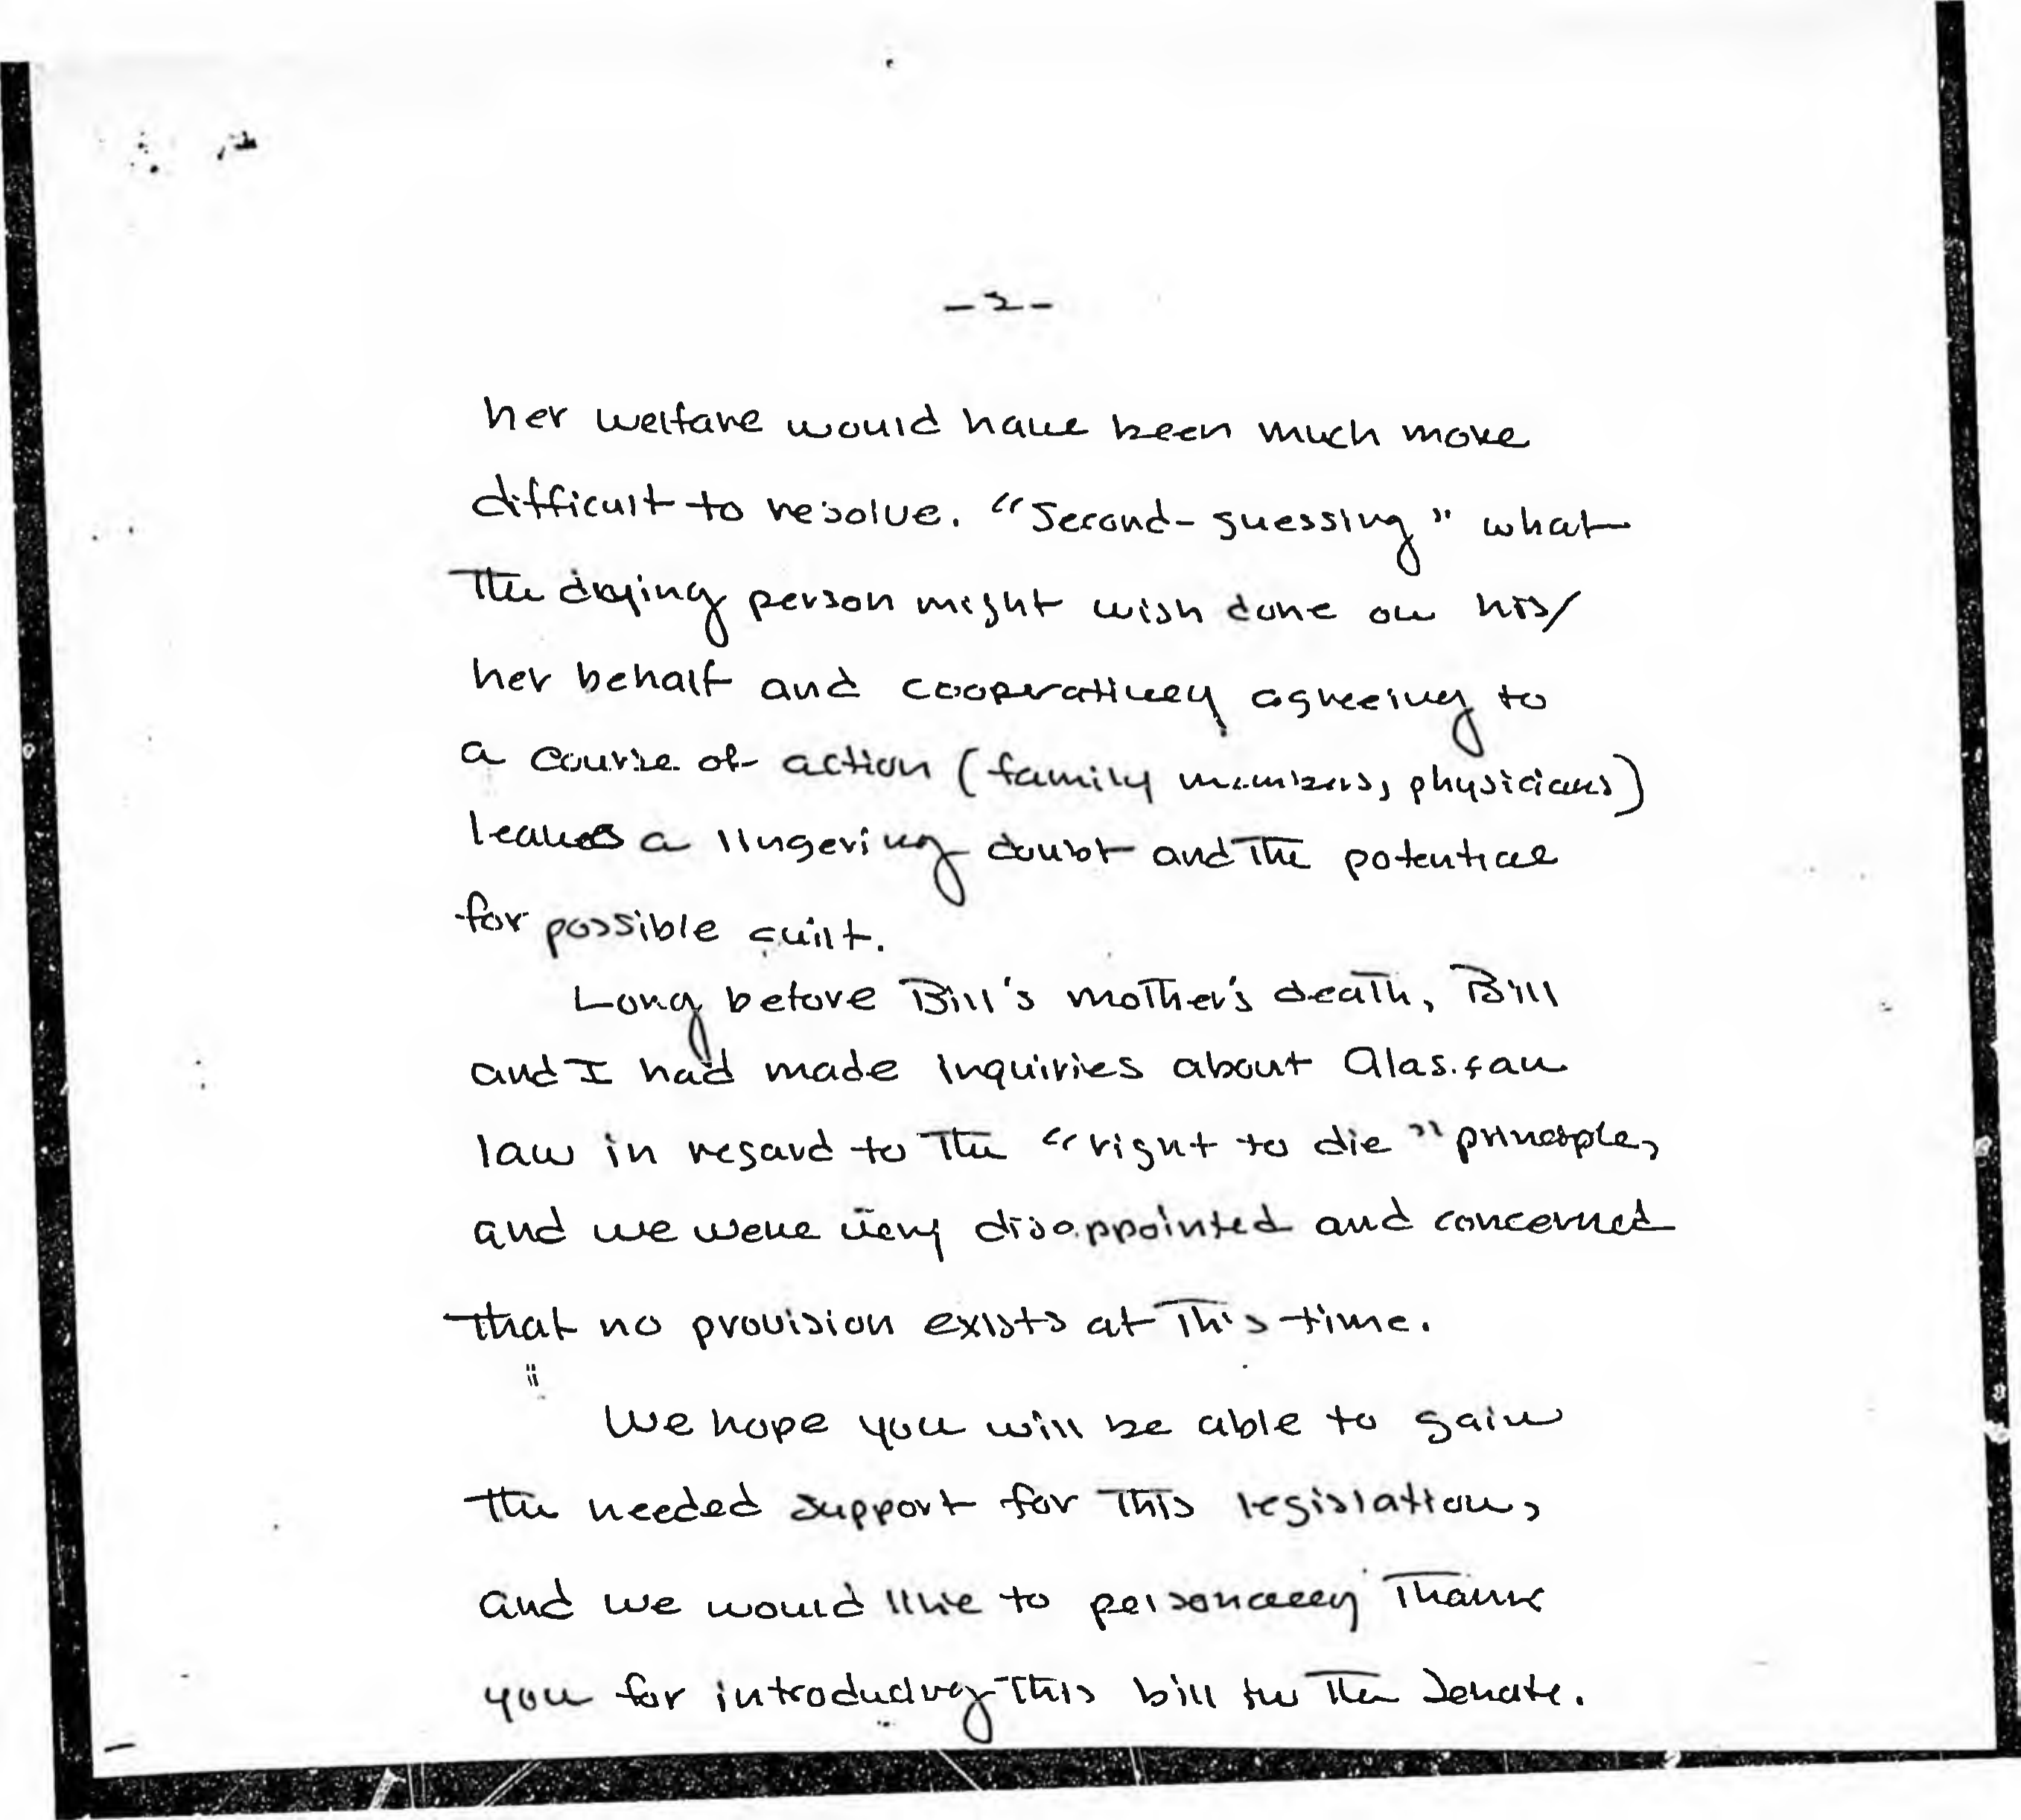 -2-
her welfare would have been much more
difficult to resolve. "Second-guessing" what
the dying person might wish done on his/
her behalf and cooperatively agreeing to
a course of action (family members, physicians)
leaves a lingering doubt and the potential
for possible guilt.
Long before Bill's mother's death, Bill
and I had made inquiries about Alaskan
law in regard to the "right to die" principle,
and we were very disappointed and concerned
that no provision exists at this time.
We hope you will be able to gain
the needed support for this legislation,
and we would like to personally thank
you for introducing this bill in the Senate.